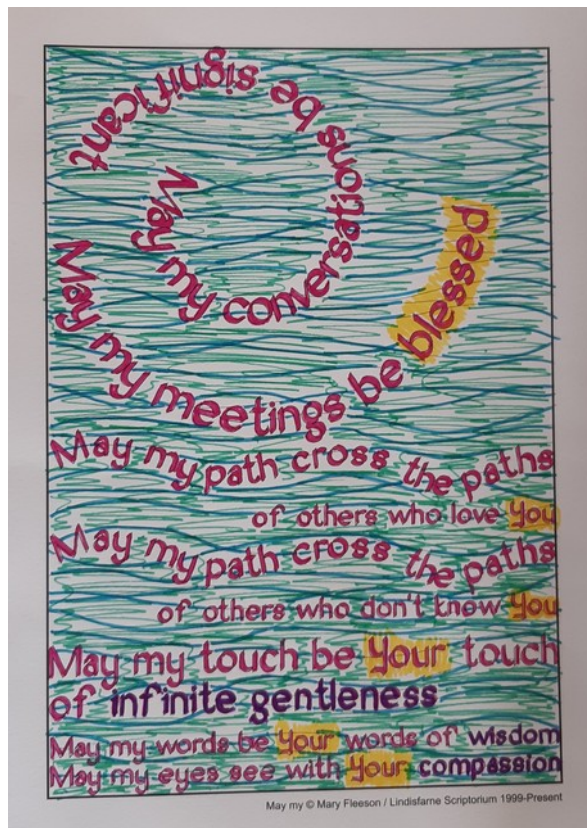 May my conversations be significant
May my meetings be blessed
May my path cross the paths
of others who love You
May my path cross the paths
of others who don't know You
May my touch be Your touch
of infinite gentleness
May my words be Your words of wisdom
May my eyes see with Your compassion
May my © Mary Fleeson / Lindisfarne Scriptorium 1999-Present